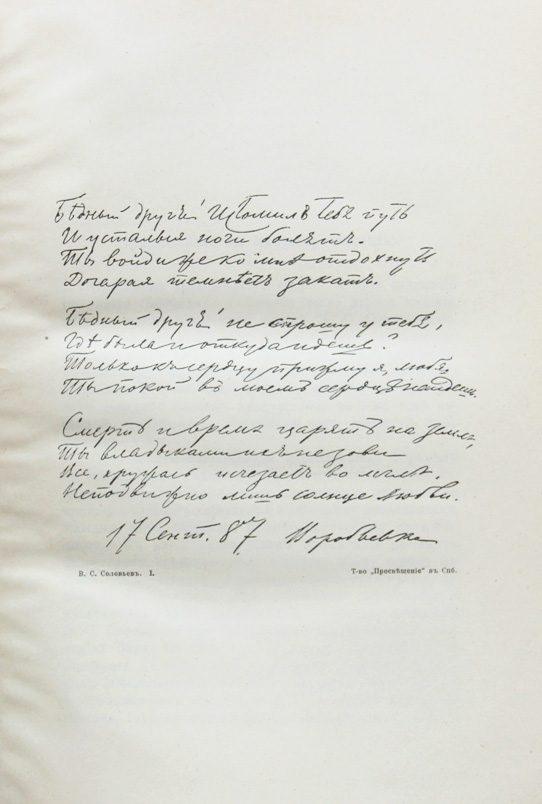 Бѣдный другъ! Истомилъ тебя путь
И усталыя ноги болятъ.
Ты войди же ко мнѣ отдохнуть
Догорая темнѣетъ закатъ.
Бѣдный другъ! не спрошу у тебя,
Гдѣ была и откуда идешь?
Только къ сердцу прижму я, любя,
Ты покой въ моемъ сердцѣ найдешь.
Смерть и время царятъ на земле,
Ты владыками ихъ не зови
Все, кружась исчезаетъ во мглѣ.
Неподвижно лишь солнце любви.
17 Сент. 87 Воробьевка
В. С. Соловьевъ. I.
Т-во „Просвѣщеніе“ въ Спб.